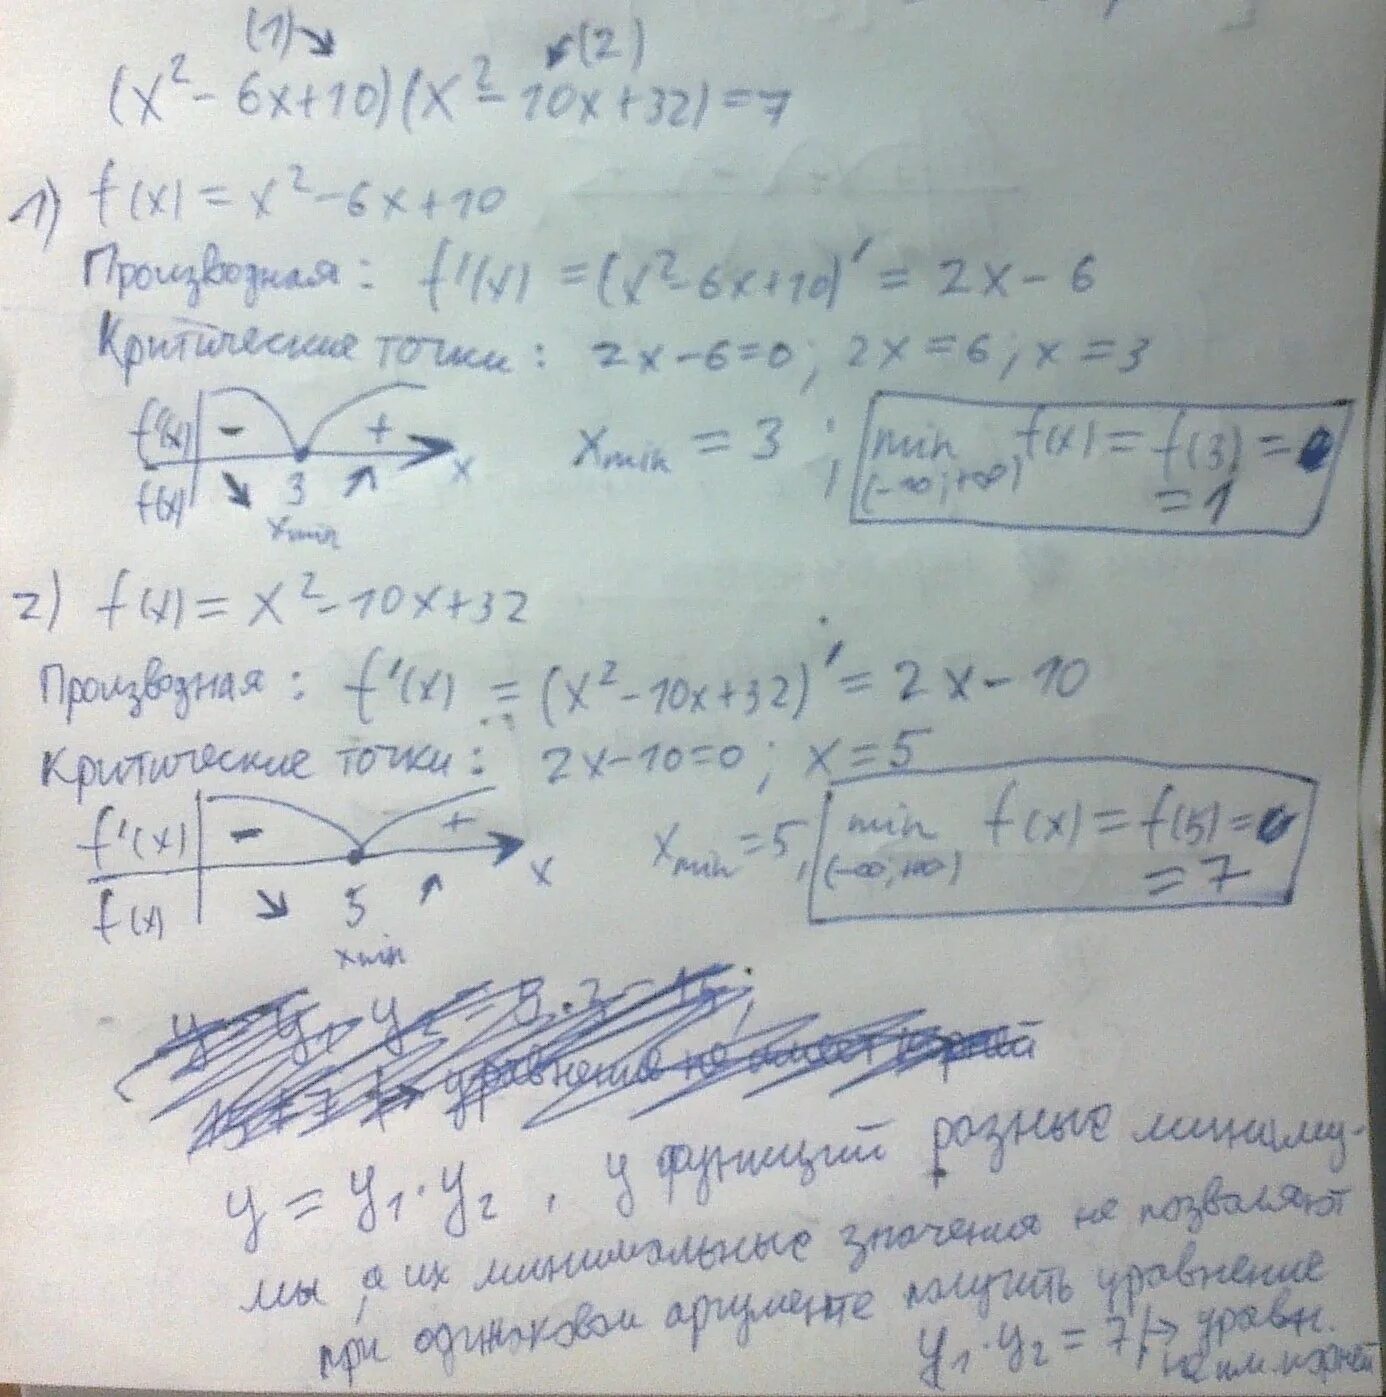 (1) (2)
(x² - 6x+10)(x² - 10x+32)=7
1) f(x) = x² - 6x+10
Производная: f'(x) = (x² - 6x+10)' = 2x - 6
Критические точки: 2x-6=0; 2x=6; x=3
f'(x) - + x
f(x) 3
xmin
xmin = 3; min f(x) = f(3) =
(-∞;+∞) = 1
2) f(x) = x² - 10x+32
Производная: f'(x) = (x² - 10x+32)' = 2x - 10
Критические точки: 2x-10=0; x=5
f'(x) - + x
f(x) 5
xmin
xmin = 5, min f(x) = f(5) =
(-∞;+∞) = 7
уравнение не имеет корней
y = y₁·y₂, у функций разные миниму-
мы, а их минимальные значения не позволяют
при одинаковом аргументе получить уравнение
y₁·y₂ = 7 |→ уравн.
не им. корней